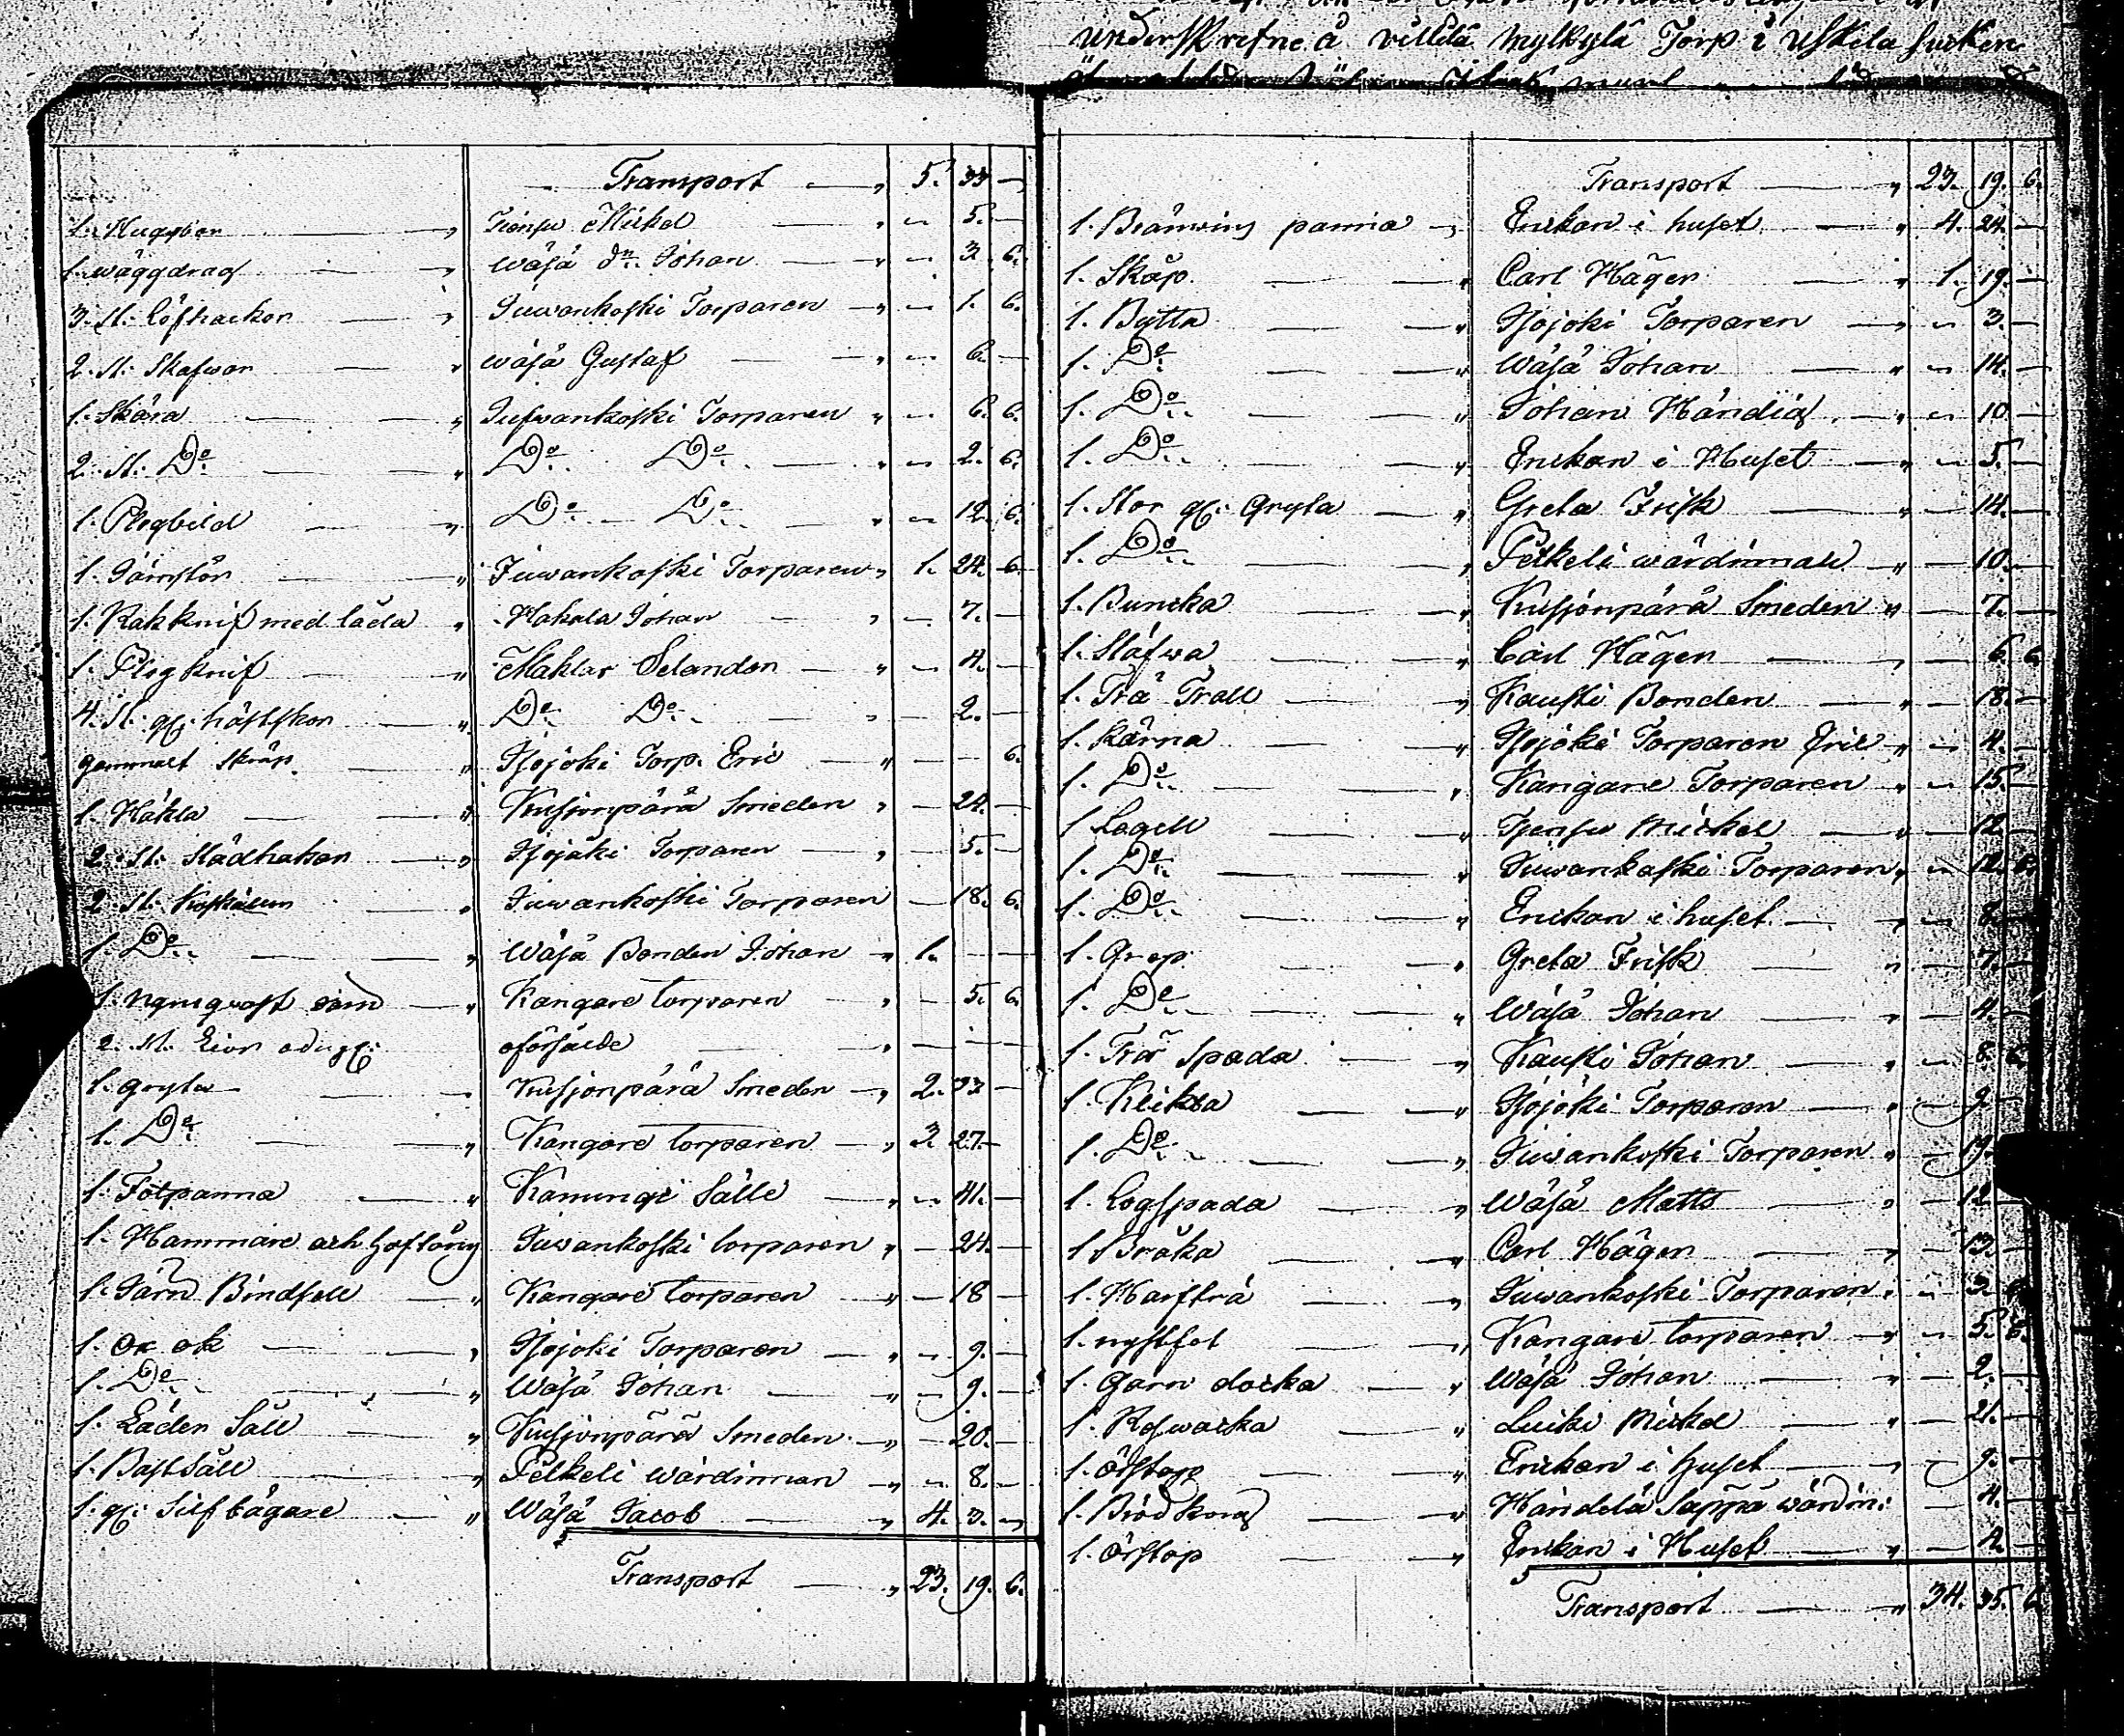 underskrefne å villilä mylkylä Torp i Uskela socken
Transport — " 5. 33 —
1. Huggber — " Isensu Mickel — " — 5. —
1. wäggdrag — " Wäsä dn: Johan — " — 3. 6.
3. st: löfhackor — " Juwankoski Torparen — " — 1. 6.
2. st: Skafwor — " Wäsä Gustaf — " — 6. —
1. Skära — " Jufwankoski Torparen " — 6. 6.
2. st: Do — " Do Do — " — 2. 6.
1. Plogbild — " Do — Do — " — 12. 6.
1. Järnstör — " Juwankoski Torparen " 1. 24. 6.
1. Rakknif med låda " Hakala Johan — " — 7. —
1. Plogknif — " Mäklar Selander — " — 4. —
4. st: gl: hästskor — " Do Do — " — 2. —
gammalt Skräp — " Isojoki Torp. Eric — " — — 6.
1. Häkla — " Kusjonpärä Smeden " — 24. —
2. st: Slädhakar — " Isojoki Torparen — " — 5. —
2. st: — " Juwankoski Torparen — 18. 6.
1. Do — " Wäsä Bonden Johan " 1.
1. — " Kangare torparen — " — 5. 6.
2. st. Lior odugl: oförsålde — " — — —
1. gryta — " Kusjonpärä Smeden — " 2. 33 —
1. Do — " Kangare torparen — " 3. 27. —
1. Fotpanna — " Kanungi Sälle — " — 41. —
1. Hammare och hoftång Juwankoski torparen " — 24. —
1. Järn Bindsele — " Kangare torparen — " — 18 —
1. Ox ok — " Isojoki Torparen — " — 9. —
1. Do — " Wäsä Johan — " — 9. —
1. Läder Såll — " Kusjonpärä Smeden — " — 20. —
1. Bastsåll — " Pelkeli wärdinnan — " — 8. —
1. gl: Silfbägare — " Wäsä Jacob — " 4. 3. —
Transport — " 23. 19. 6.
Transport — " 23. 19. 6.
1. Bränwins panna — " Enkan i huset — " 4. 24. —
1. Skåp — " Carl Hägen — " 1. 19. —
1. Bytta — " Isojoki Torparen — " — 3. —
1. Do — " Wäsä Johan — " — 14. —
1. Do — " Johan Händig — " — 10 —
1. Do — " Enkan i Huset — " — 5. —
1. Stor gl: Gryta — " Greta Frisk — " — 14. —
1. Do — " Pelkeli wärdinnan " — 10. —
1. Buncka — " Kusjonpärä Smeden " — 7. —
1. Stäfwa — " Carl Hägen — " — 6. 6.
1. Trä Trall — " Kauski Bonden — " — 18. —
1. Kärna — " Isojoki Torparen Eric " — 4. —
1. Do — " Kangare Torparen " — 15. —
1. Lagell — " Isensu Mickel — " — 12. —
1. Do — " Juwankoski Torparen " — 12. 6.
1. Do — " Enkan i huset — " — 8. —
1. Grep — " Greta Frisk — " — 7. —
1. Do — " Wäsä Johan — " — 4. —
1. Trä Spada — " Kauski Johan — " — 8. 6.
1. Klikka — " Isojoki Torparen — " — 9 —
1. Do — " Juwankoski Torparen " — 19.
1. Logspada — " Wäsä Matts — " — 12. —
1. Bråka — " Carl Hägen — " — 13. —
1. Harfträ — " Juwankoski Torparen " — 3.
1. nystfot — " Kangare torparen — " — 5. 6.
1. Garn docka — " Wäsä Johan — " — 2. —
1. — " Luiki Mickel — " — 21. —
1. Ölstop — " Enkan i huset — " — 9. —
1. Bröd korg — " Händelä Sappa wärdin: — 4. —
1. Ölstop — " Enkan i Huset — " — 4. —
Transport — " 34. 35. 6.